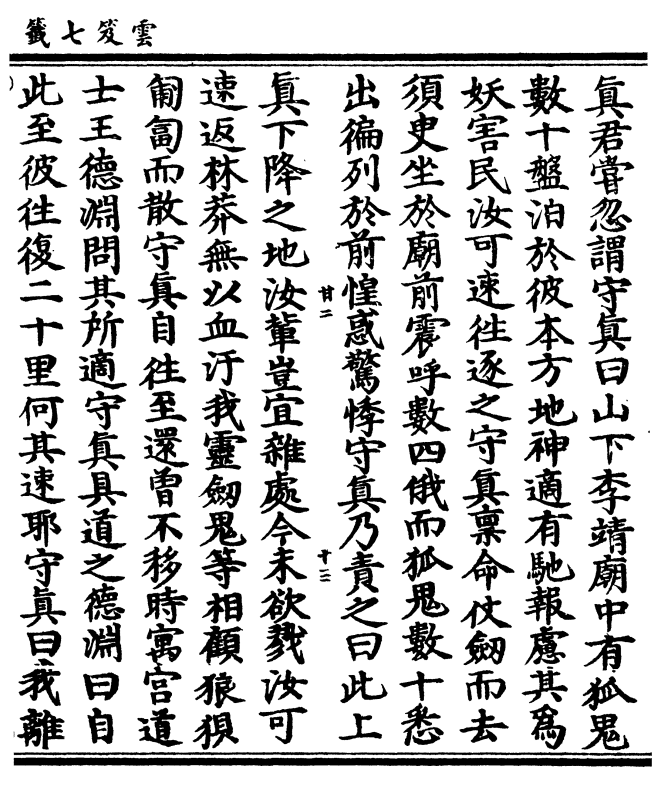 雲笈七籤
真君嘗忽謂守真曰山下李靖廟中有狐鬼
數十盤泊於彼本方地神適有馳報慮其為
妖害民汝可速往逐之守真稟命仗劒而去
須臾坐於廟前震呼數四俄而狐鬼數十悉
出徧列於前惶惑驚悸守真乃責之曰此上
廿二
十二
真下降之地汝輩豈宜雜處今未欲戮汝可
速返林莽無以血汙我靈劒鬼等相顧狼狽
匍匐而散守真自往至還曾不移時寓宫道
士王德淵問其所適守真具道之德淵曰自
此至彼往復二十里何其速耶守真曰我離